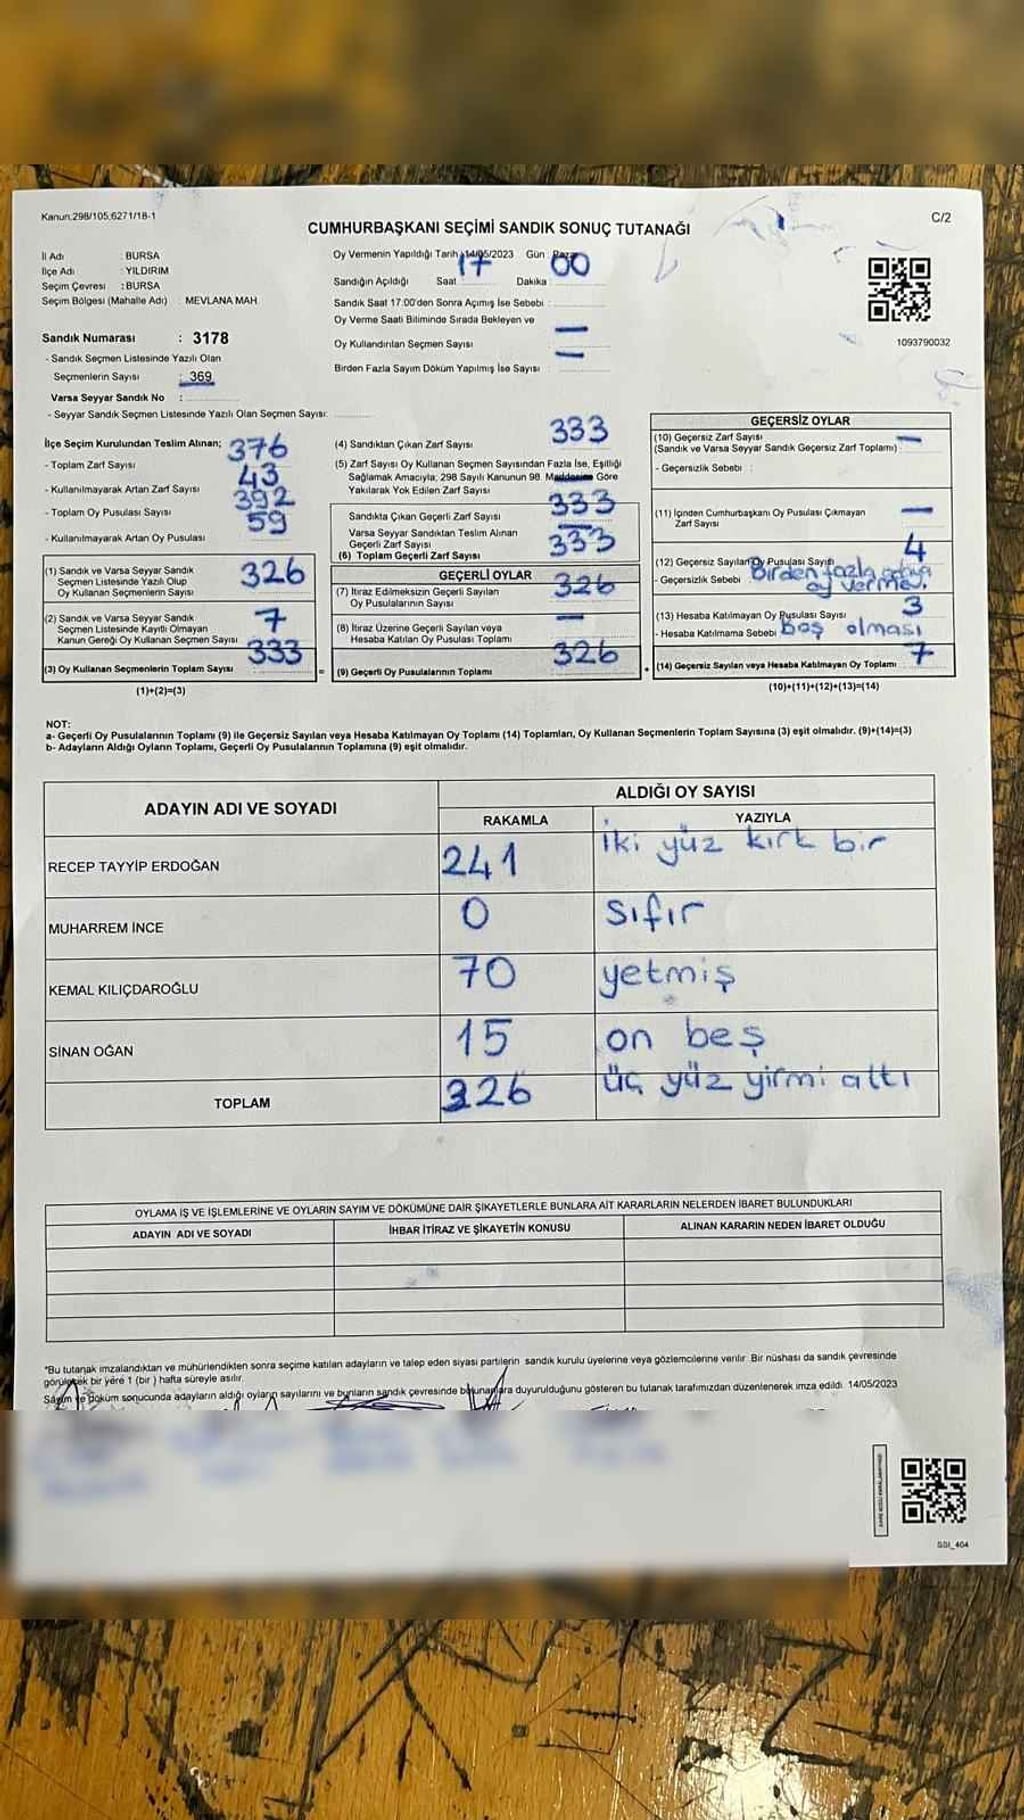 Kanun:298/105,6271/18-1
C/2
CUMHURBAŞKANI SEÇİMİ SANDIK SONUÇ TUTANAĞI
İl Adı : BURSA
İlçe Adı : YILDIRIM
Seçim Çevresi : BURSA
Seçim Bölgesi (Mahalle Adı) MEVLANA MAH.
Sandık Numarası : 3178
- Sandık Seçmen Listesinde Yazılı Olan
Seçmenlerin Sayısı : 369
Varsa Seyyar Sandık No :
- Seyyar Sandık Seçmen Listesinde Yazılı Olan Seçmen Sayısı:
Oy Vermenin Yapıldığı Tarih : 14/05/2023 Gün :
Sandığın Açıldığı Saat 17 Dakika 00
Sandık Saat 17:00'den Sonra Açımış İse Sebebi :
Oy Verme Saati Bitiminde Sırada Bekleyen ve
Oy Kullandırılan Seçmen Sayısı : —
Birden Fazla Sayım Döküm Yapılmış İse Sayısı : —
1093790032
İlçe Seçim Kurulundan Teslim Alınan;
- Toplam Zarf Sayısı 376
- Kullanılmayarak Artan Zarf Sayısı 43
- Toplam Oy Pusulası Sayısı 392
- Kullanılmayarak Artan Oy Pusulası 59
(1) Sandık ve Varsa Seyyar Sandık
Seçmen Listesinde Yazılı Olup
Oy Kullanan Seçmenlerin Sayısı 326
(2) Sandık ve Varsa Seyyar Sandık
Seçmen Listesinde Kayıtlı Olmayan
Kanun Gereği Oy Kullanan Seçmen Sayısı 7
(3) Oy Kullanan Seçmenlerin Toplam Sayısı 333 =
(1)+(2)=(3)
(4) Sandıktan Çıkan Zarf Sayısı 333
(5) Zarf Sayısı Oy Kullanan Seçmen Sayısından Fazla İse, Eşitliği
Sağlamak Amacıyla; 298 Sayılı Kanunun 98. Maddesine Göre
Yakılarak Yok Edilen Zarf Sayısı —
Sandıkta Çıkan Geçerli Zarf Sayısı 333
Varsa Seyyar Sandıktan Teslim Alınan
Geçerli Zarf Sayısı —
(6) Toplam Geçerli Zarf Sayısı 333
GEÇERLİ OYLAR
(7) İtiraz Edilmeksizin Geçerli Sayılan
Oy Pusulalarının Sayısı 326
(8) İtiraz Üzerine Geçerli Sayılan veya
Hesaba Katılan Oy Pusulası Toplamı —
(9) Geçerli Oy Pusulalarının Toplamı 326 +
GEÇERSİZ OYLAR
(10) Geçersiz Zarf Sayısı —
(Sandık ve Varsa Seyyar Sandık Geçersiz Zarf Toplamı)
- Geçersizlik Sebebi :
(11) İçinden Cumhurbaşkanı Oy Pusulası Çıkmayan
Zarf Sayısı —
(12) Geçersiz Sayılan Oy Pusulası Sayısı 4
- Geçersizlik Sebebi Birden fazla adaya
oy verme.
(13) Hesaba Katılmayan Oy Pusulası Sayısı 3
- Hesaba Katılmama Sebebi boş olması
(14) Geçersiz Sayılan veya Hesaba Katılmayan Oy Toplamı 7
(10)+(11)+(12)+(13)=(14)
NOT:
a- Geçerli Oy Pusulalarının Toplamı (9) ile Geçersiz Sayılan veya Hesaba Katılmayan Oy Toplamı (14) Toplamları, Oy Kullanan Seçmenlerin Toplam Sayısına (3) eşit olmalıdır. (9)+(14)=(3)
b- Adayların Aldığı Oyların Toplamı, Geçerli Oy Pusulalarının Toplamına (9) eşit olmalıdır.
ADAYIN ADI VE SOYADI ALDIĞI OY SAYISI
RAKAMLA YAZIYLA
RECEP TAYYİP ERDOĞAN 241 iki yüz kırk bir
MUHARREM İNCE 0 sıfır
KEMAL KILIÇDAROĞLU 70 yetmiş
SİNAN OĞAN 15 on beş
TOPLAM 326 üç yüz yirmi altı
OYLAMA İŞ VE İŞLEMLERİNE VE OYLARIN SAYIM VE DÖKÜMÜNE DAİR ŞİKAYETLERLE BUNLARA AİT KARARLARIN NELERDEN İBARET BULUNDUKLARI
ADAYIN ADI VE SOYADI İHBAR İTİRAZ VE ŞİKAYETİN KONUSU ALINAN KARARIN NEDEN İBARET OLDUĞU
*Bu tutanak imzalandıktan ve mühürlendikten sonra seçime katılan adayların ve talep eden siyasi partilerin sandık kurulu üyelerine veya gözlemcilerine verilir. Bir nüshası da sandık çevresinde
görülecek bir yere 1 (bir ) hafta süreyle asılır.
Sayım ve döküm sonucunda adayların aldığı oyların sayılarını ve bunların sandık çevresinde bulunanlara duyurulduğunu gösteren bu tutanak tarafımızdan düzenlenerek imza edildi. 14/05/2023